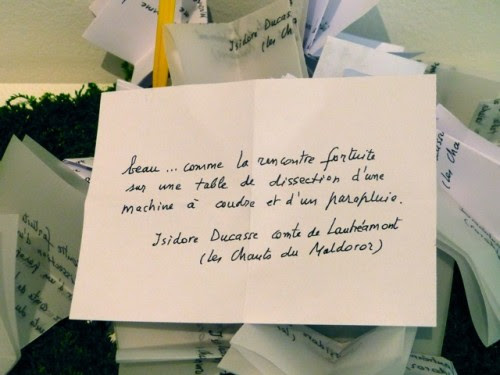 Isidore Ducasse
(les Cha
beau... comme la rencontre fortuite
sur une table de dissection d'une
machine à coudre et d'un parapluie.
Isidore Ducasse comte de Lautréamont
(les Chants du Maldoror)